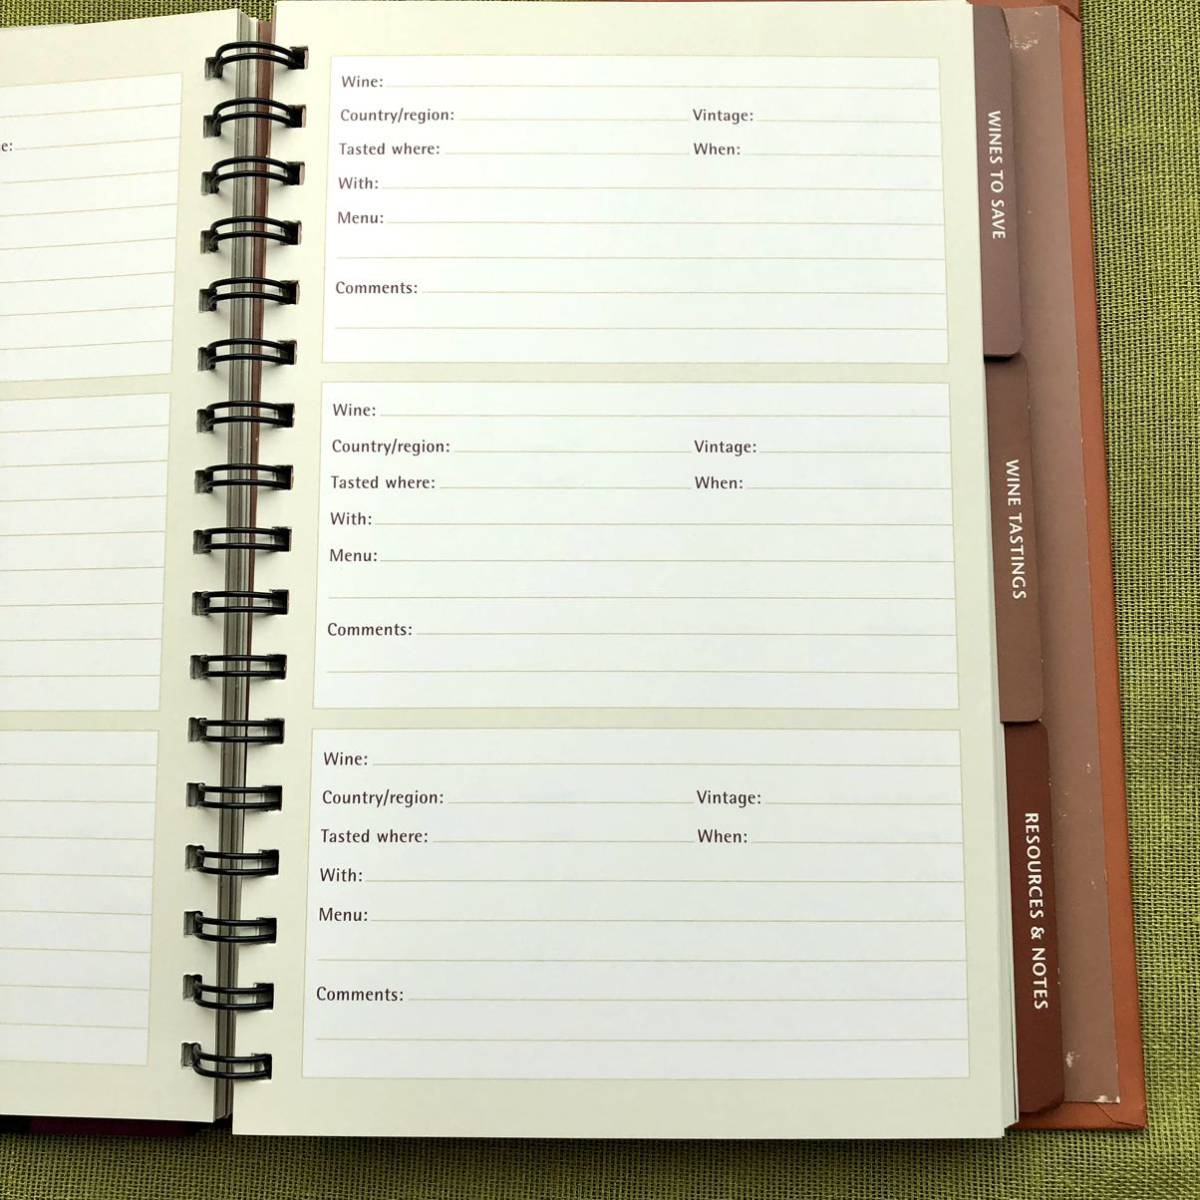 e:
Wine:
Country/region: Vintage:
Tasted where: When:
With:
Menu:
Comments:
Wine:
Country/region: Vintage:
Tasted where: When:
With:
Menu:
Comments:
Wine:
Country/region: Vintage:
Tasted where: When:
With:
Menu:
Comments:
WINES TO SAVE
WINE TASTINGS
RESOURCES & NOTES